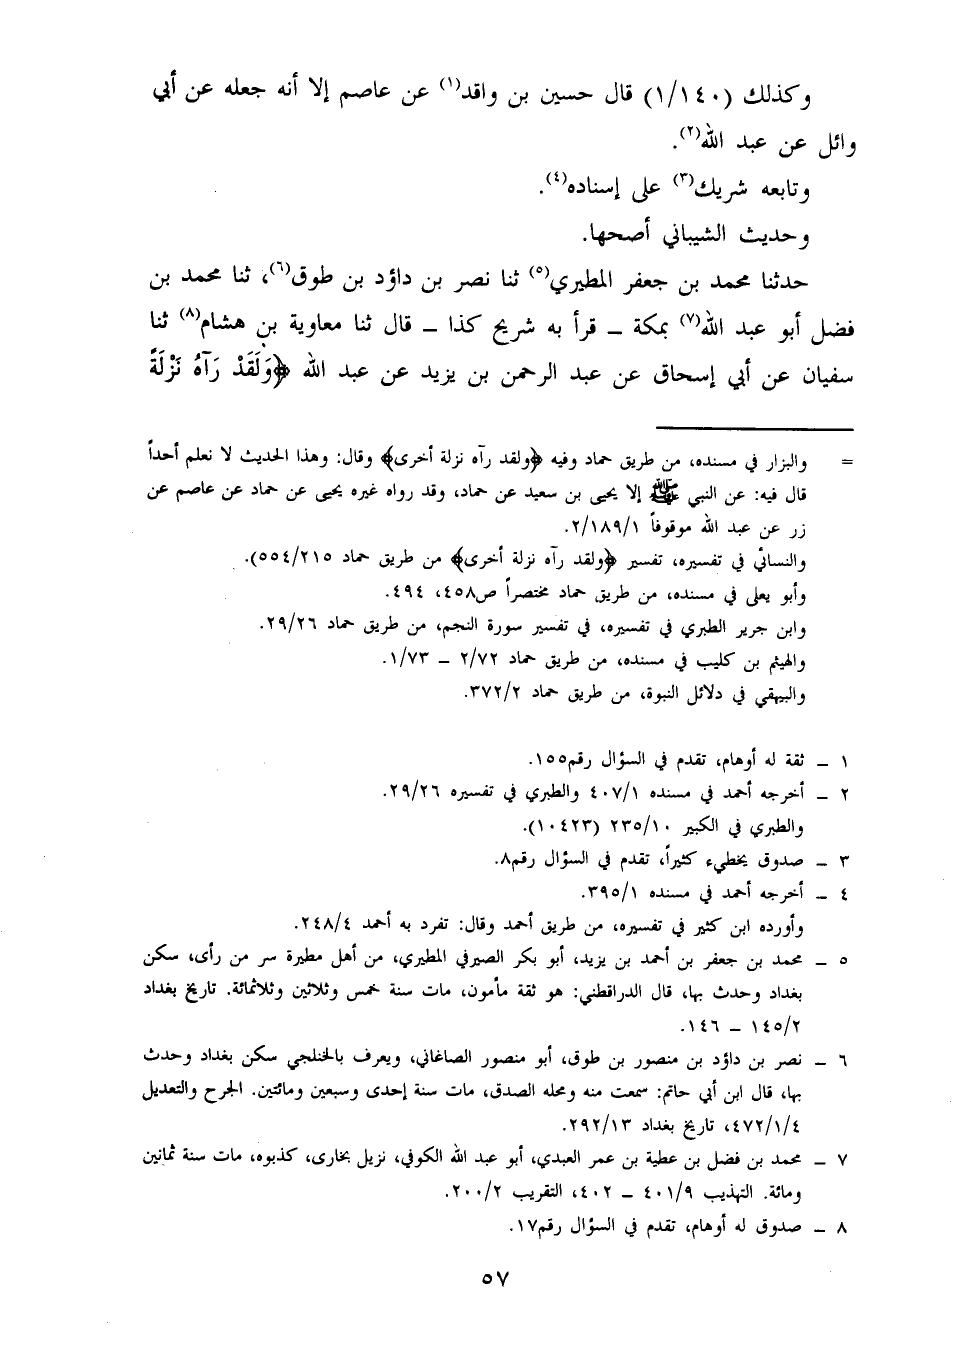 وكذلك (١/١٤٠) قال حسين بن واقد(١) عن عاصم إلا أنه جعله عن أبي
وائل عن عبد الله(٢).
وتابعه شريك(٣) على إسناده(٤).
وحديث الشيباني أصحها.
حدثنا محمد بن جعفر المطيري(٥) ثنا نصر بن داؤد بن طوق(٦)، ثنا محمد بن
فضل أبو عبد الله(٧) بمكة ــ قرأ به شريح كذا ــ قال ثنا معاوية بن هشام(٨) ثنا
سفيان عن أبي إسحاق عن عبد الرحمن بن يزيد عن عبد الله ﴿وَلَقَدْ رَآهُ نَزْلَةً
= والبزار في مسنده، من طريق حماد وفيه ﴿ولقد رآه نزلة أخرى﴾ وقال: وهذا الحديث لا نعلم أحداً
قال فيه: عن النبي ﷺ إلا يحيى بن سعيد عن حماد، وقد رواه غيره يحيى عن حماد عن عاصم عن
زر عن عبد الله موقوفاً ٢/١٨٩/١.
والنسائي في تفسيره، تفسير ﴿ولقد رآه نزلة أخرى﴾ من طريق حماد ٥٥٤/٢١٥).
وأبو يعلى في مسنده، من طريق حماد مختصراً ص٤٥٨، ٤٩٤.
وابن جرير الطبري في تفسيره، في تفسير سورة النجم، من طريق حماد ٢٩/٢٦.
والهيثم بن كليب في مسنده، من طريق حماد ٢/٧٢ ــ ١/٧٣.
والبيهقي في دلائل النبوة، من طريق حماد ٣٧٢/٢.
١ ــ ثقة له أوهام، تقدم في السؤال رقم١٥٥.
٢ ــ أخرجه أحمد في مسنده ٤٠٧/١ والطبري في تفسيره ٢٩/٢٦.
والطبري في الكبير ٢٣٥/١٠ (١٠٤٢٣).
٣ ــ صدوق يخطيء كثيراً، تقدم في السؤال رقم٨.
٤ ــ أخرجه أحمد في مسنده ٣٩٥/١.
وأورده ابن كثير في تفسيره، من طريق أحمد وقال: تفرد به أحمد ٢٤٨/٤.
٥ ــ محمد بن جعفر بن أحمد بن يزيد، أبو بكر الصيرفي المطيري، من أهل مطيرة سر من رأى، سكن
بغداد وحدث بها، قال الدراقطني: هو ثقة مأمون، مات سنة خمس وثلاثين وثلاثمائة. تاريخ بغداد
١٤٥/٢ ــ ١٤٦.
٦ ــ نصر بن داؤد بن منصور بن طوق، أبو منصور الصاغاني، ويعرف بالخنلجي سكن بغداد وحدث
بها، قال ابن أبي حاتم: سمعت منه ومحله الصدق، مات سنة إحدى وسبعين ومائتين. الجرح والتعديل
٤٧٢/١/٤، تاريخ بغداد ٢٩٢/١٣.
٧ ــ محمد بن فضل بن عطية بن عمر العبدي، أبو عبد الله الكوفي، نزيل بخارى، كذبوه، مات سنة ثمانين
ومائة. التهذيب ٤٠١/٩ ــ ٤٠٢، التقريب ٢٠٠/٢.
٨ ــ صدوق له أوهام، تقدم في السؤال رقم١٧.
٥٧